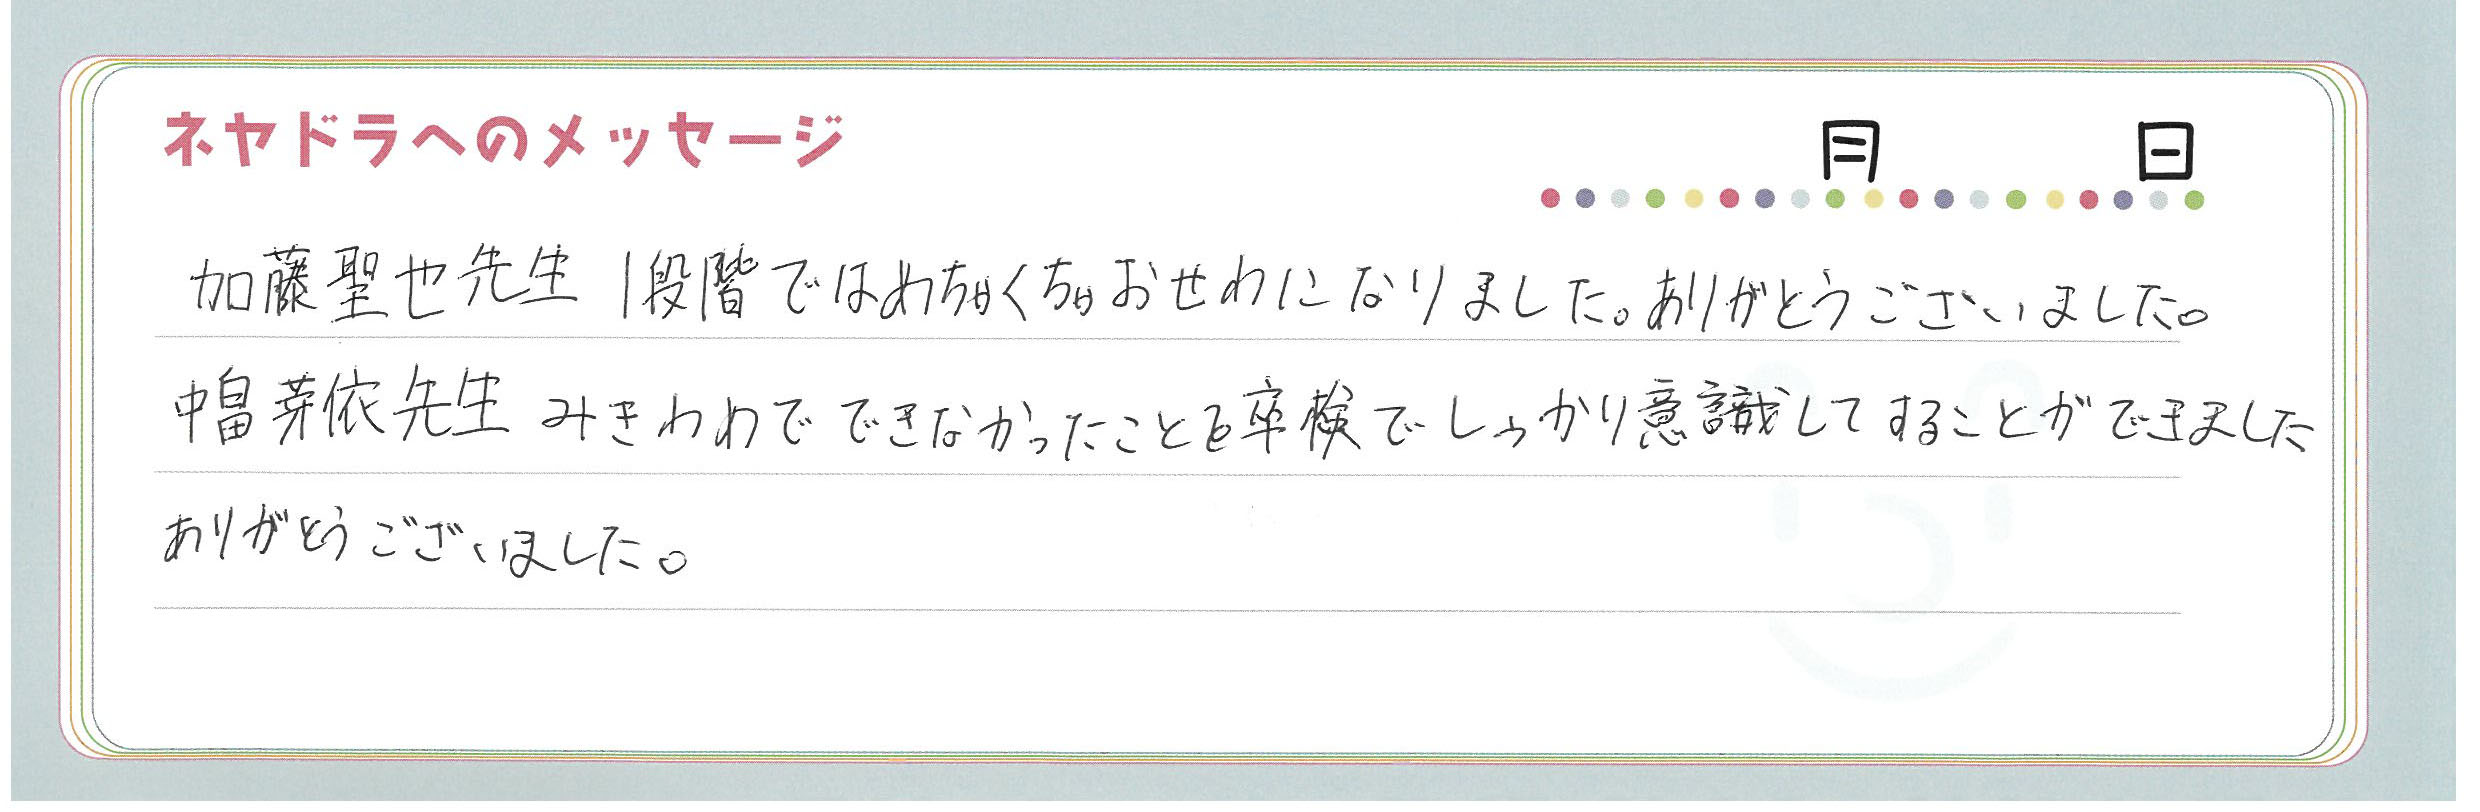 ネヤドラへのメッセージ
月 日
加藤聖也先生 1段階ではめちゃくちゃおせわになりました。ありがとうございました。
中畠芽依先生 みきわめで できなかったことを卒検でしっかり意識してすることができました
ありがとうございました。